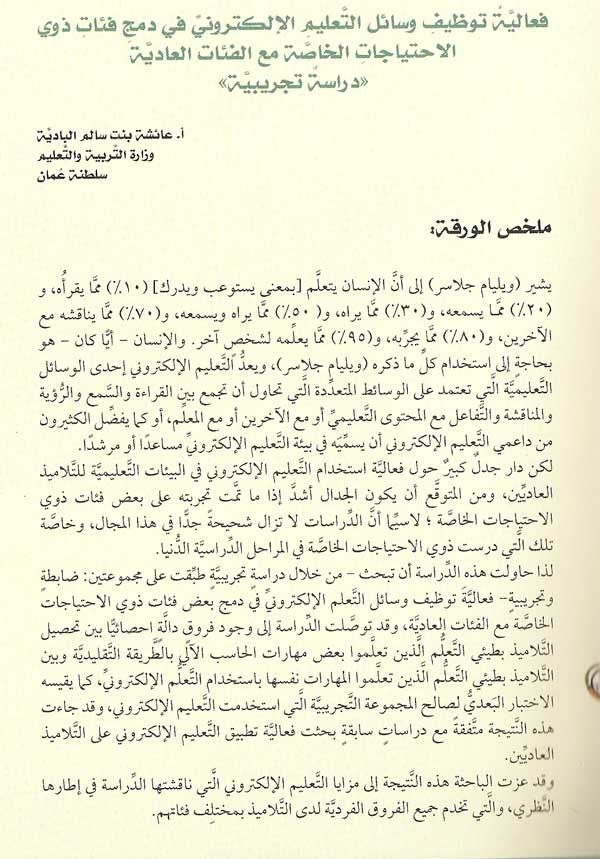 فعاليَّةُ توظيفِ وسائل التَّعليم الإلكترونيِّ في دمجِ فئاتِ ذوي
الاحتياجاتِ الخاصَّة مع الفئات العاديَّة
«دراسةٌ تجريبيَّة»
أ. عائشة بنت سالم الباديَّة
وزارة التَّربية والتَّعليم
سلطنة عُمان
ملخص الورقة:
يشير (ويليام جلاسر) إلى أنَّ الإنسان يتعلَّم [بمعنى يستوعب ويدرك] (١٠٪) ممَّا يقرأُه، و
(٢٠٪) ممَّا يسمعه، و(٣٠٪) ممَّا يراه، و( ٥٠٪) ممَّا يراه ويسمعه، و(٧٠٪) ممَّا يناقشه مع
الآخرين، و(٨٠٪) ممَّا يجرِّبه، و(٩٥٪) ممَّا يعلِّمه لشخصٍ آخر. والإنسان - أيًّا كان - هو
بحاجةٍ إلى استخدام كلِّ ما ذكره (ويليام جلاسر)، ويعدُّ التَّعليم الإلكتروني إحدى الوسائل
التَّعليميَّة الَّتي تعتمد على الوسائط المتعدِّدة الَّتي تحاول أن تجمع بين القراءة والسَّمع والرُّؤية
والمناقشة والتَّفاعل مع المحتوى التَّعليميِّ أو مع الآخرين أو مع المعلِّم، أو كما يفضِّل الكثيرون
من داعمي التَّعليم الإلكتروني أن يسمِّيَه في بيئة التَّعليم الإلكترونيِّ مساعدًا أو مرشدًا.
لكن دار جدلٌ كبيرٌ حول فعاليَّة استخدام التَّعليم الإلكتروني في البيئات التَّعليميَّة للتَّلاميذ
العاديِّين، ومن المتوقَّع أن يكون الجدال أشدَّ إذا ما تمَّت تجربته على بعض فئات ذوي
الاحتياجات الخاصَّة ؛ لاسيَّما أنَّ الدِّراسات لا تزال شحيحةً جدًّا في هذا المجال، وخاصَّة
تلك الَّتي درست ذوي الاحتياجات الخاصَّة في المراحل الدِّراسيَّة الدُّنيا.
لذا حاولت هذه الدِّراسة أن تبحث - من خلال دراسةٍ تجريبيَّةٍ طبِّقت على مجموعتين: ضابطةٍ
وتجريبيةٍ- فعاليَّة توظيف وسائل التَّعلم الإلكترونيِّ في دمج بعض فئات ذوي الاحتياجات
الخاصَّة مع الفئات العاديَّة، وقد توصَّلت الدِّراسة إلى وجود فروق دالَّة احصائيًّا بين تحصيل
التَّلاميذ بطيئي التَّعلُّم الَّذين تعلَّموا بعض مهارات الحاسب الآلَيِّ بالطَّريقة التَّقليديَّة وبين
التَّلاميذ بطيئي التَّعلُّم الَّذين تعلَّموا المهارات نفسها باستخدام التَّعلُّم الإلكترونيِّ، كما يقيسه
الاختبار البَعديُّ لصالح المجموعة التَّجريبيَّة الَّتي استخدمت التَّعليم الإلكتروني، وقد جاءت
هذه النَّتيجة متَّفقةً مع دراساتٍ سابقةٍ بحثت فعاليَّة تطبيق التَّعليم الإلكتروني على التَّلاميذ
العاديِّين.
وقد عزت الباحثة هذه النَّتيجة إلى مزايا التَّعليم الإلكتروني الَّتي ناقشتها الدِّراسة في إطارها
النَّظري، والَّتي تخدم جميع الفروق الفرديَّة لدى التَّلاميذ بمختلِف فئاتهم.